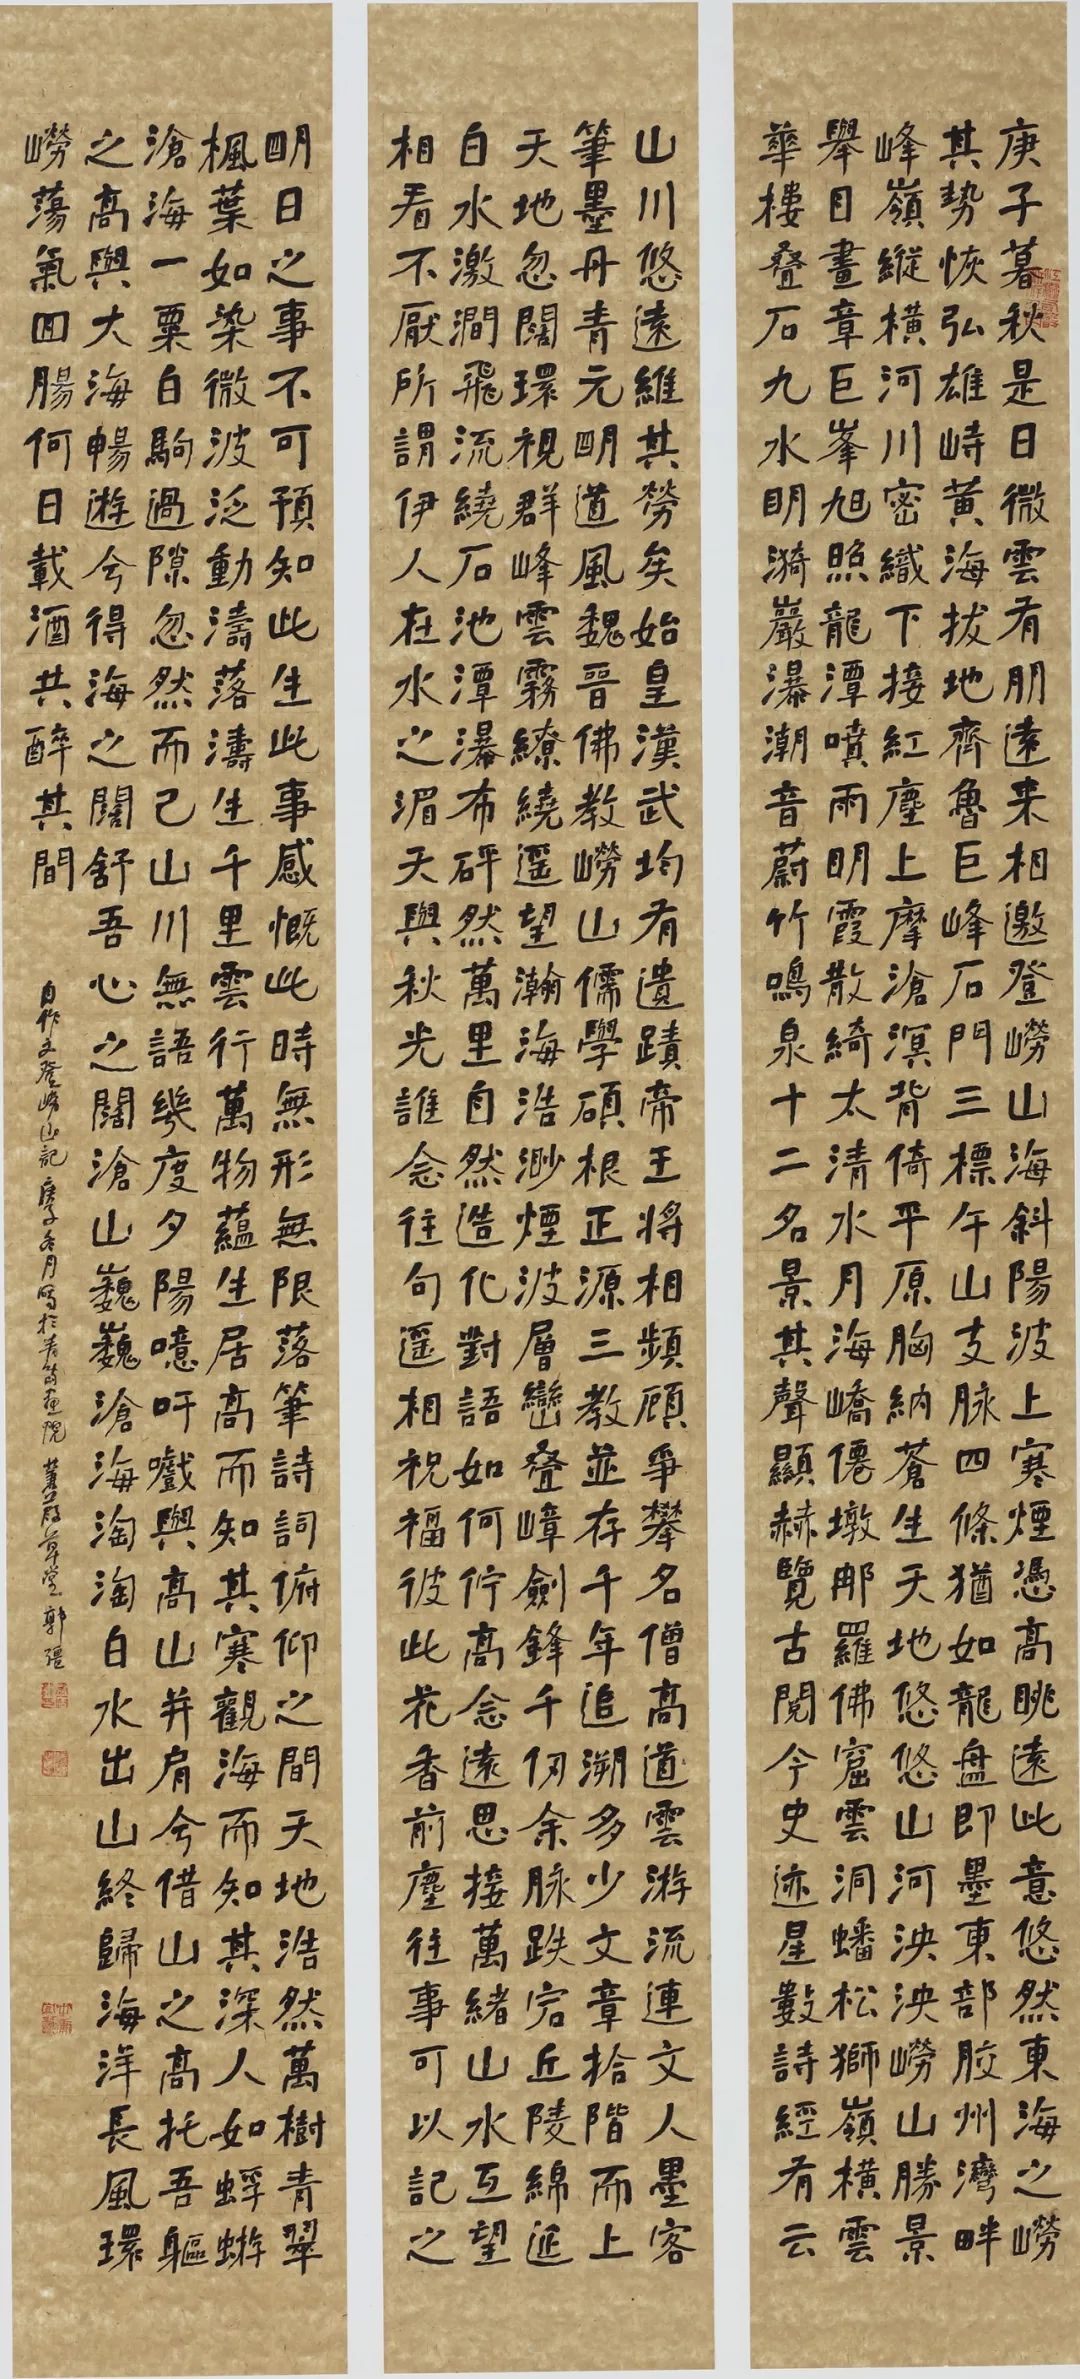 庚子暮秋是日微雲有朋遠来相邀登嶗山海斜陽波上寒煙憑高眺遠此意悠然東海之嶗
其勢恢弘雄峙黄海拔地齊魯巨峰石門三標午山支脉四條猶如龍盤即墨東部胶州灣畔
峰嶺縱橫河川密織下接紅塵上摩滄溟背倚平原胸納蒼生天地悠悠山河泱泱嶗山勝景
舉目畫章巨峯旭照龍潭噴雨明霞散綺太清水月海嶠僊墩那羅佛窟雲洞蟠松獅嶺橫雲
華樓疊石九水明漪巖瀑潮音蔚竹鳴泉十二名景其聲顯赫覽古閲今史迹星數詩經有云
山川悠遠維其勞矣始皇漢武均有遺蹟帝王將相頻顧爭攀名僧高道雲游流連文人墨客
筆墨丹青元明道風魏晋佛教嶗山儒學碩根正源三教並存千年追溯多少文章拾階而上
天地忽闊環視群峰雲霧繚繞遥望瀚海浩渺煙波層巒疊嶂劍鋒千仞余脉跌宕丘陵綿延
白水激澗飛流繞石池潭瀑布砰然萬里自然造化對語如何佇高念遠思接萬緒山水互望
相看不厭所謂伊人在水之湄天與秋光誰念往句遥相祝福彼此花香前塵往事可以記之
明日之事不可預知此生此事感慨此時無形無限落筆詩詞俯仰之間天地浩然萬樹青翠
楓葉如染微波泛動濤落濤生千里雲行萬物蘊生居高而知其寒觀海而知其深人如蜉蝣
滄海一粟白駒過隙忽然而已山川無語幾度夕陽噫吁嚱與高山并肩兮借山之高托吾軀
之高與大海暢遊兮得海之闊舒吾心之闊滄山巍巍滄海淘淘白水出山終歸海洋長風環
嶗蕩氣回腸何日載酒共醉其間
自作文登嶗山記庚子冬月寫於青島畫院蒹葭草堂郭强